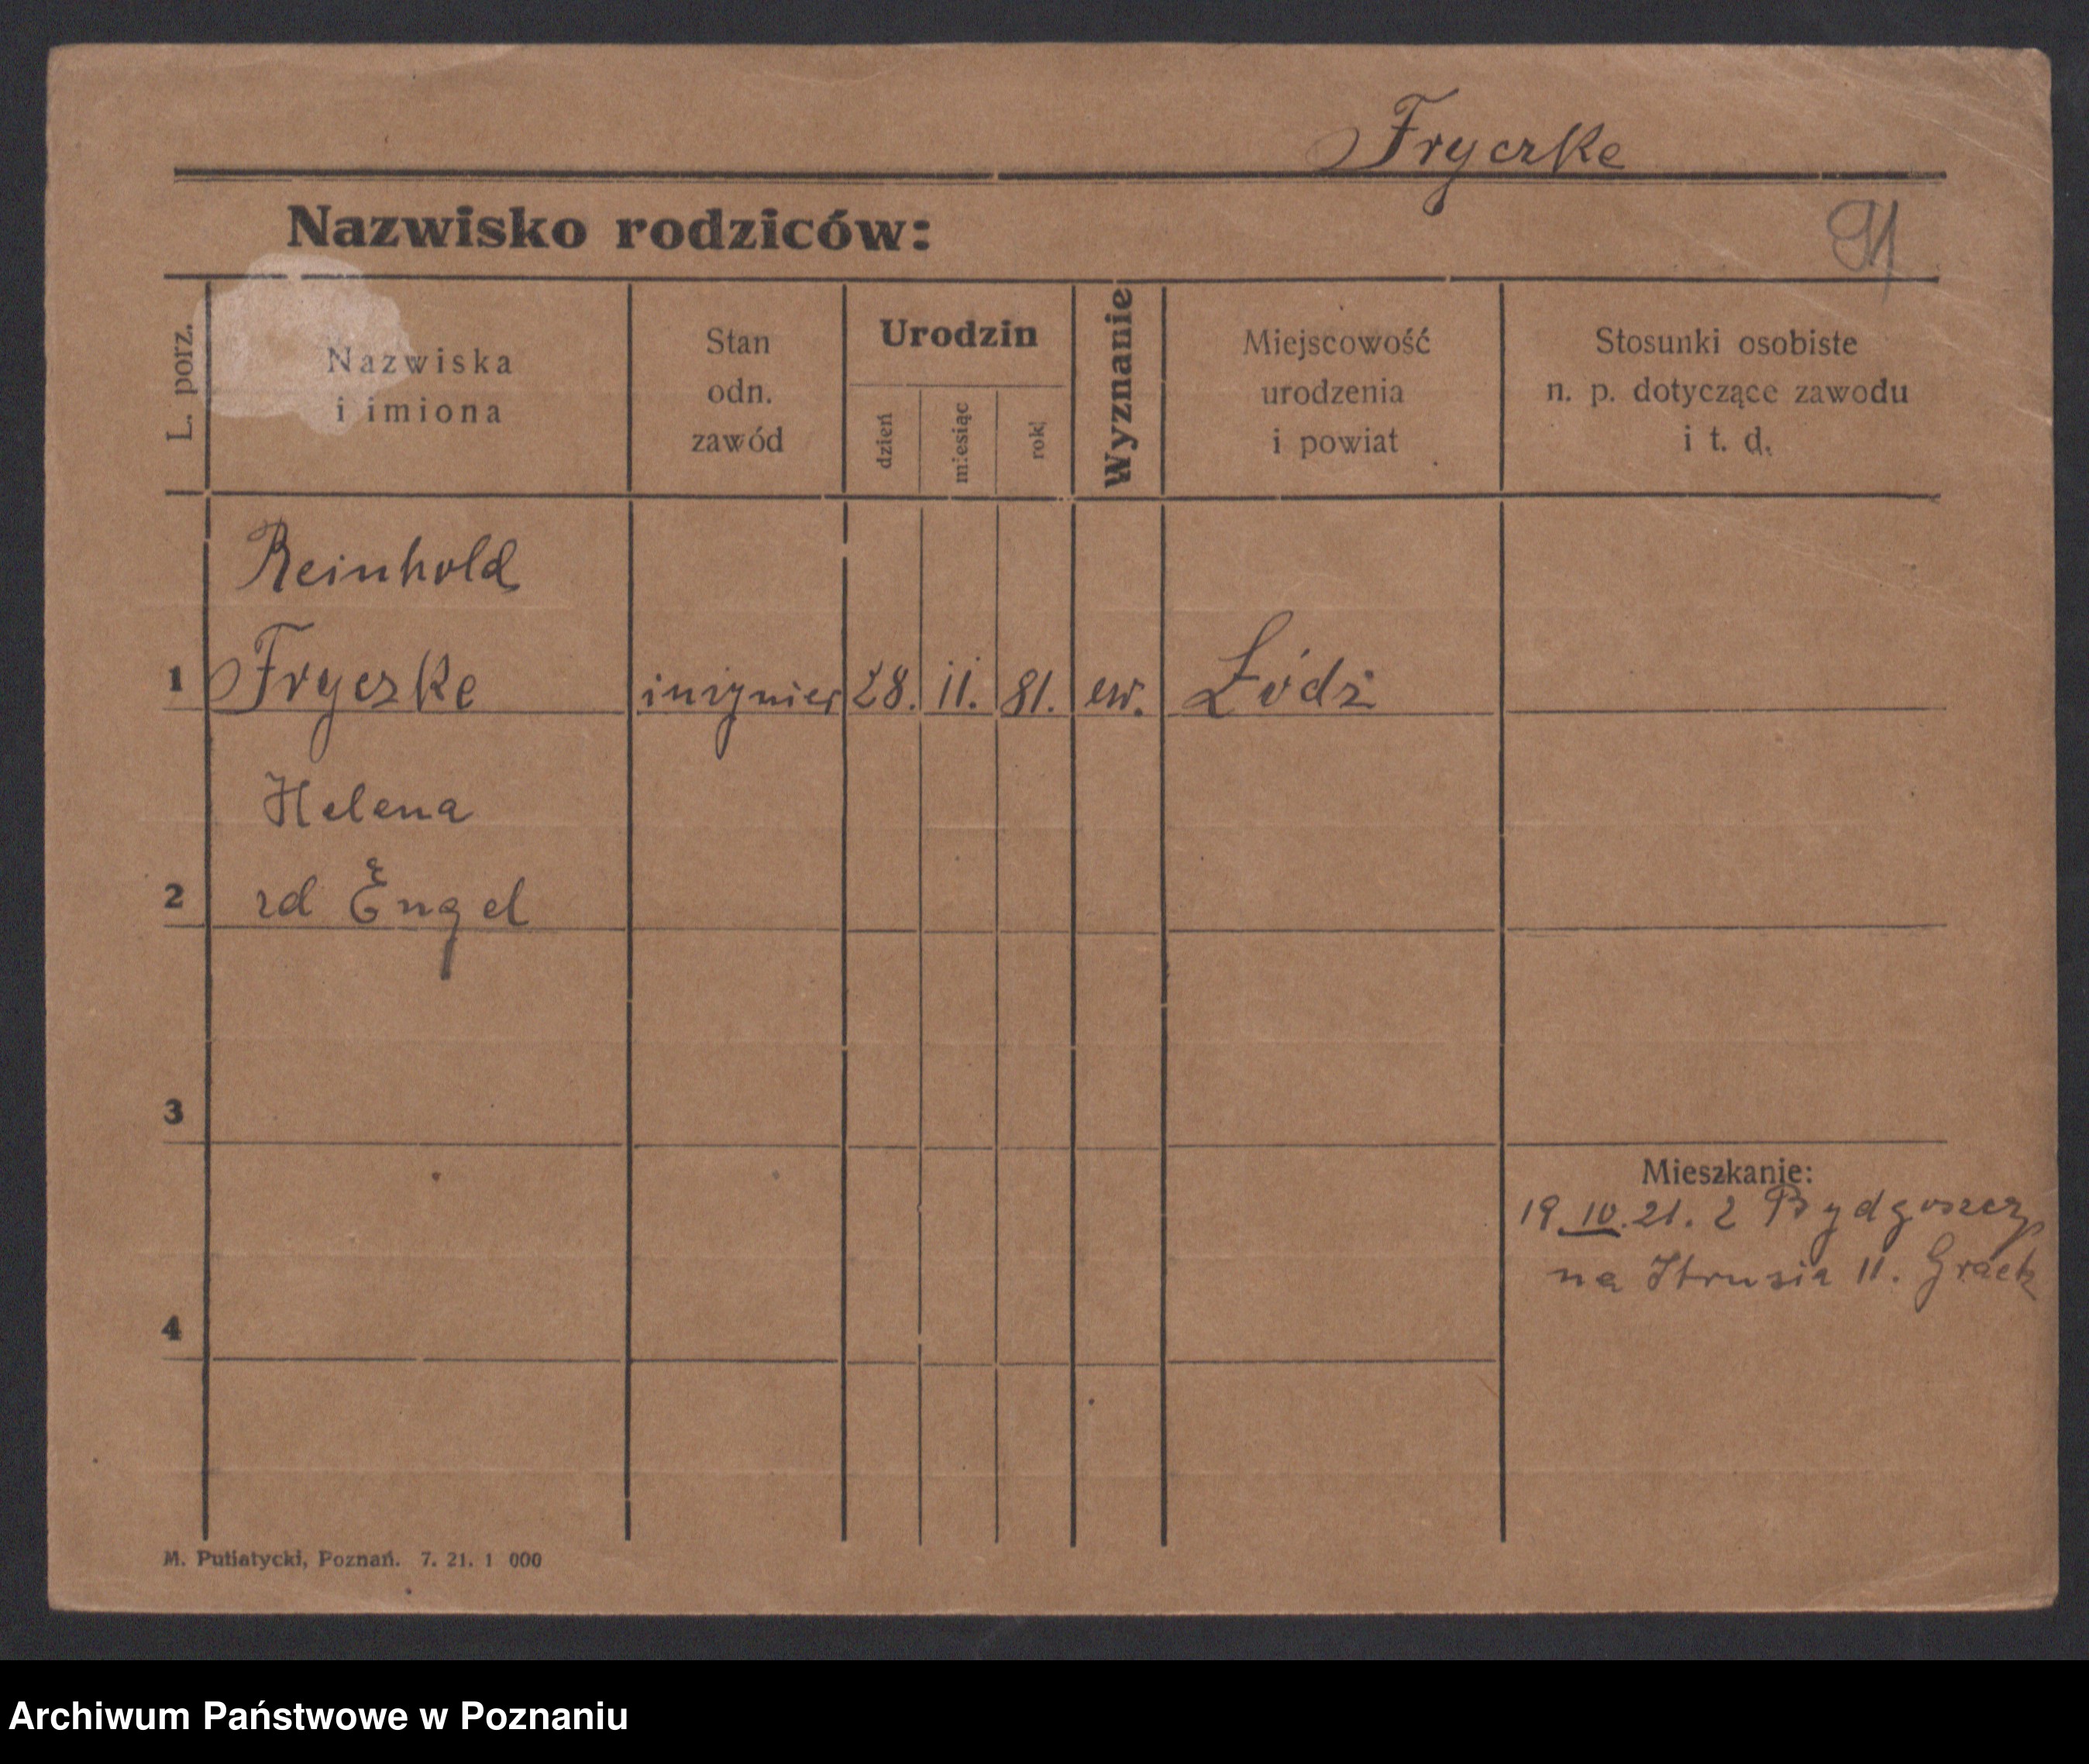 Fryczke
Nazwisko rodziców:
91
L. porz.
Nazwiska
i imiona
Stan
odn.
zawód
Urodzin
dzień
miesiąc
rok
Wyznanie
Miejscowość
urodzenia
i powiat
Stosunki osobiste
n. p. dotyczące zawodu
i t. d.
Reinhold
1 Fryczke inżynier 28. 11. 81. ew. Łódź
Helena
2 zd Engel
3
Mieszkanie:
19.IV.21. z Bydgoszczy
na Strusia 11.
4
M. Putiatycki, Poznań. 7. 21. 1 000
Archiwum Państwowe w Poznaniu